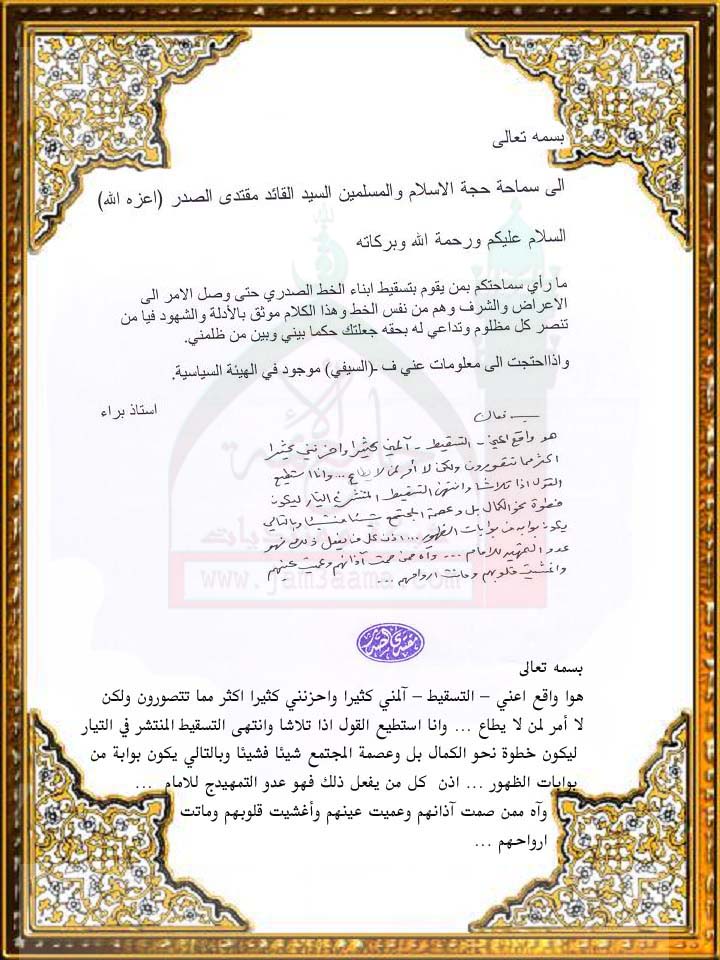 بسمه تعالى
الى سماحة حجة الاسلام والمسلمين السيد القائد مقتدى الصدر (اعزه الله)
السلام عليكم ورحمة الله وبركاته
ما رأي سماحتكم بمن يقوم بتسقيط ابناء الخط الصدري حتى وصل الامر الى
الاعراض والشرف وهم من نفس الخط وهذا الكلام موثق بالأدلة والشهود فيا من
تنصر كل مظلوم وتداعي له بحقه جعلتك حكما بيني وبين من ظلمني.
واذااحتجت الى معلومات عني ف -(السيفي) موجود في الهيئة السياسية.
استاذ براء
بسمه تعالى
هو واقع اعني - التسقيط - آلمني كثيرا واحزنني كثيرا
اكثر مما تتصورون ولكن لا أمر لمن لا يطاع ... وانا استطيع
القول اذا تلاشا وانتهى التسقيط المنتشر في التيار ليكون
خطوة نحو الكمال بل وعصمة المجتمع شيئا فشيئا وبالتالي
يكون بوابة من بوابات الظهور ... اذن كل من يفعل ذلك فهو
عدو التمهيد للامام ... وآه ممن صمت آذانهم وعميت عينهم
وأغشيت قلوبهم وماتت ارواحهم ...
www.jam3aama.com
مقتدى الصدر
بسمه تعالى
هوا واقع اعني – التسقيط – آلمني كثيرا واحزنني كثيرا اكثر مما تتصورون ولكن
لا أمر لمن لا يطاع ... وانا استطيع القول اذا تلاشا وانتهى التسقيط المنتشر في التيار
ليكون خطوة نحو الكمال بل وعصمة المجتمع شيئا فشيئا وبالتالي يكون بوابة من
بوابات الظهور ... اذن كل من يفعل ذلك فهو عدو التمهيدج للامام ...
وآه ممن صمت آذانهم وعميت عينهم وأغشيت قلوبهم وماتت
ارواحهم ...